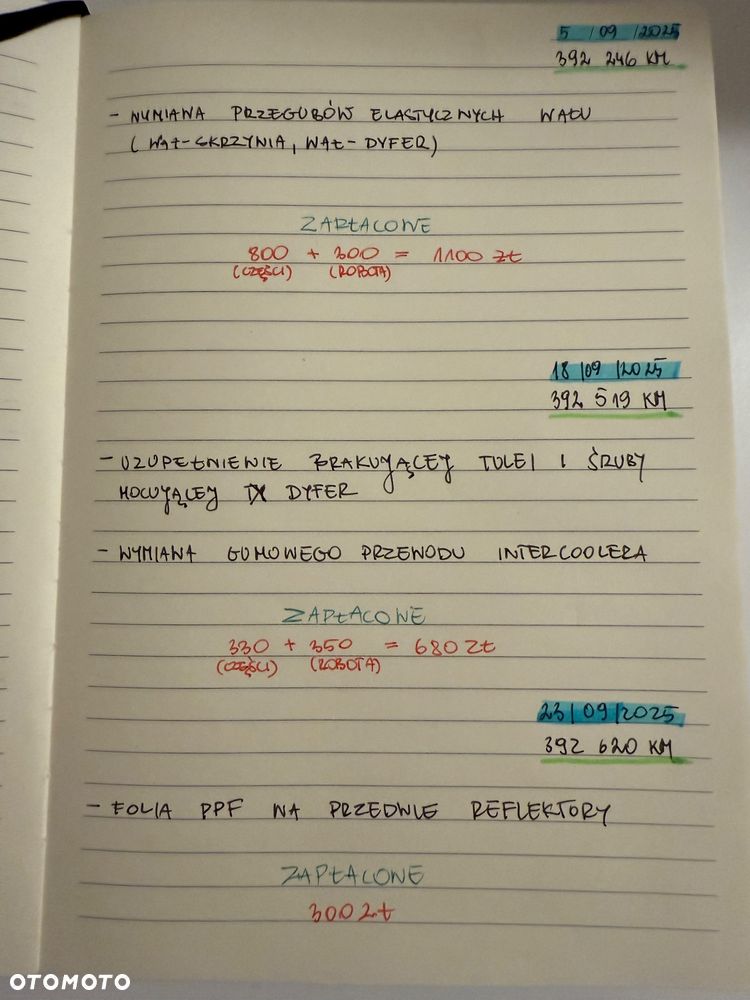 5 /09 /2025
392 246 KM
- WYMIANA PRZEGUBÓW ELASTYCZNYCH WAŁU
(WAŁ-SKRZYNIA, WAŁ-DYFER)
ZAPŁACONE
800 + 300 = 1100 zł
(CZĘŚCI) (ROBOTA)
18/09/2025
392 519 KM
- UZUPEŁNIENIE BRAKUJĄCEJ TULEI I ŚRUBY
MOCUJĄCEJ DYFER
- WYMIANA GUMOWEGO PRZEWODU INTERCOOLERA
ZAPŁACONE
330 + 350 = 680 zł
(CZĘŚCI) (ROBOTA)
23/09/2025
392 620 KM
- FOLIA PPF NA PRZEDNIE REFLEKTORY
ZAPŁACONE
300 zł
OTOMOTO